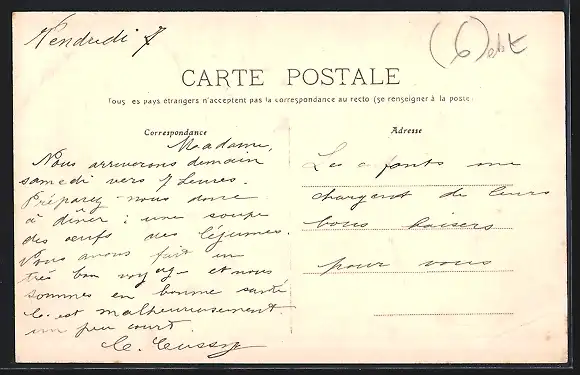 Vendredi 7
(6)
CARTE POSTALE
Tous les pays étrangers n'acceptent pas la correspondance au recto (se renseigner à la poste)
Correspondance
Adresse
Madame,
Nous arriverons demain
samedi vers 7 heures.
Préparez nous donc
à dîner : une soupe
des oeufs des légumes.
Nous avons fait un
très bon voyage et nous
sommes en bonne santé
C'est malheureusement
un peu court.
Les enfants me
chargent de leurs
bons baisers
pour vous